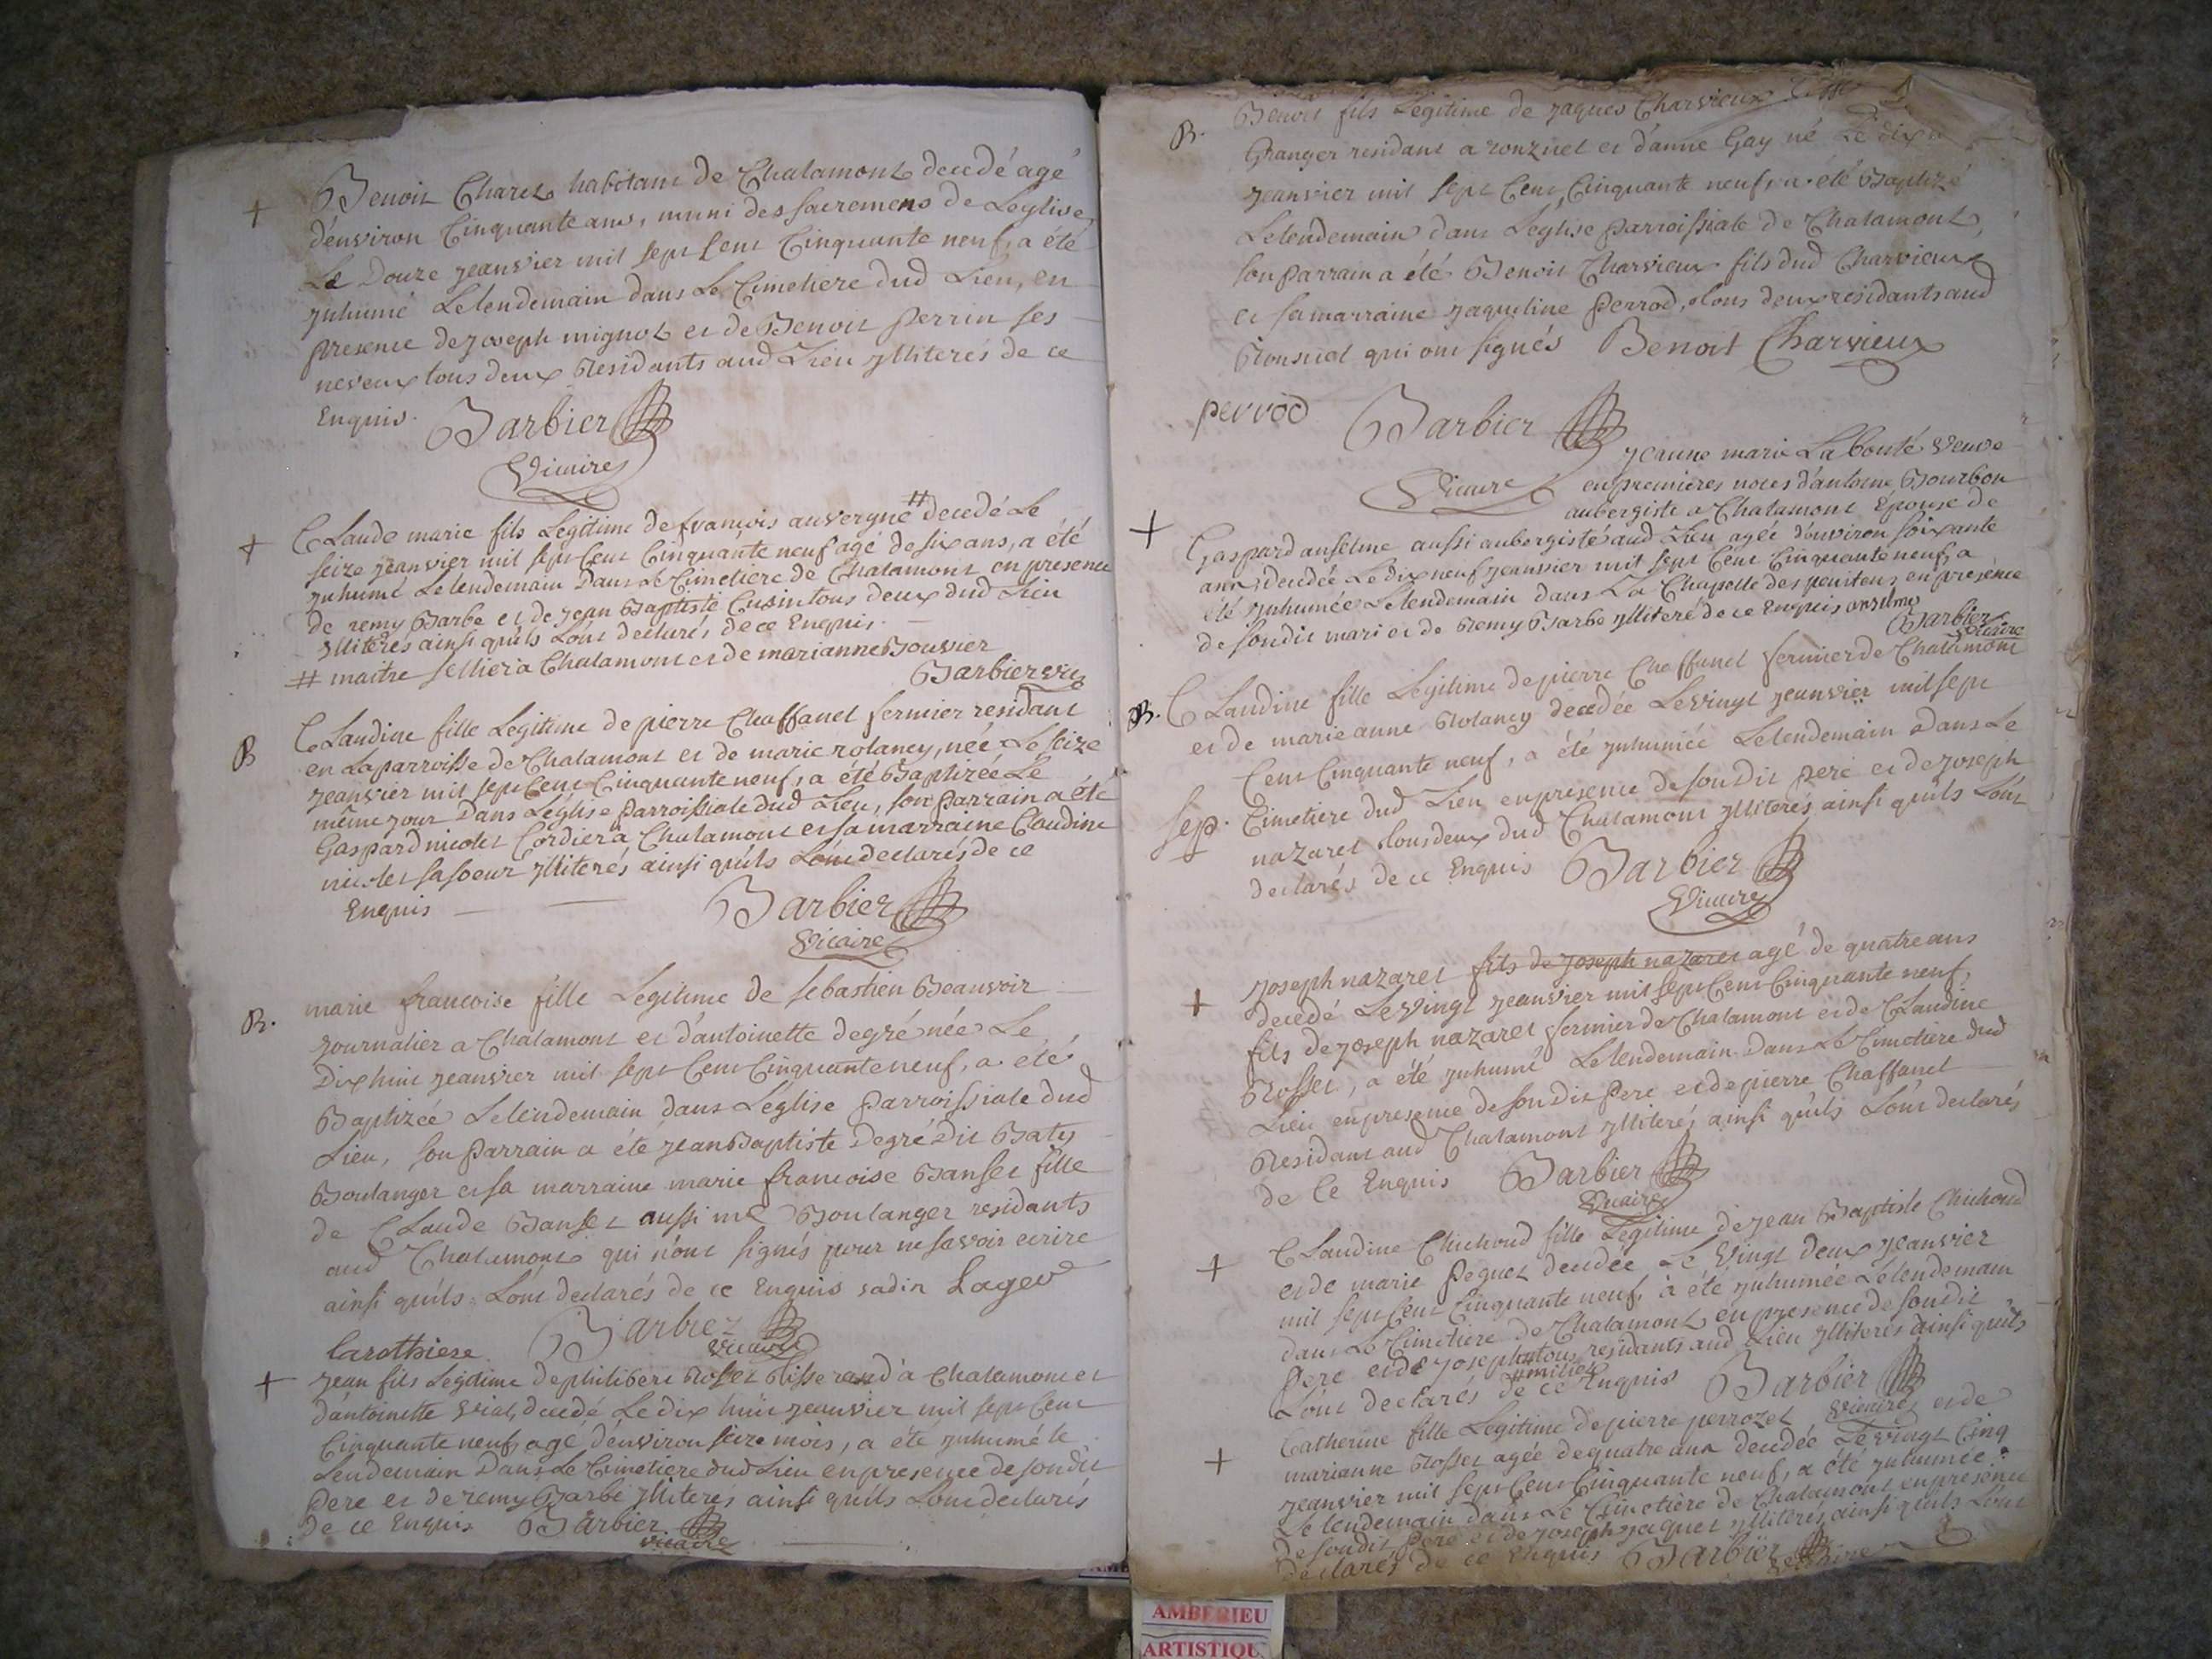 + Benoit Charet habitant de Chalamont decedé agé
d'environ Cinquante ans, muni des sacremens de Leglise,
Le Douze jeanvier mil sept Cent Cinquante neuf, a été
ynhumé Le lendemain dans Le Cimetiere dud Lieu, en
presence de joseph mignot et de Benoit perrin ses
neveux tous deux Residants aud Lieu ylliterés de ce
Enquis. Barbier
Vicaire
+ Claude marie fils Legitime de francois auvergne # decedé Le
seize jeanvier mil sept Cent Cinquante neuf agé de six ans, a été
ynhumé Le lendemain Dans Le Cimetiere de Chalamont en presence
de remy Barbe et de jean Baptiste Cusin tous deux dud Lieu
ylliterés ainsi quils Lont declarés de ce Enquis.
# maitre sellier a Chalamont et de marianne Bouvier
Barbier vic
B Claudine fille Legitime de pierre Chaffanel fermier residant
en La parroisse de Chalamont et de marie rolancy, née Le seize
jeanvier mil sept Cent Cinquante neuf, a été Baptizée Le
même jour Dans Léglise parroissiale dud Lieu, son parrain a été
Gaspard nicolet Cordier a Chalamont et sa marraine Claudine
nicolet sa soeur ylliterés ainsi quils Lont declarés de ce
Enquis Barbier
Vicaire
B. marie francoise fille Legitime de sebastien Beauvoir
journalier a Chalamont et d'antoinette degré née Le
Dix huit jeanvier mil sept Cent Cinquante neuf, a été
Baptizée Le lendemain dans Léglise parroissiale dud
Lieu, son parrain a été jean Baptiste Degré Dit Baty
Boulanger et sa marraine marie francoise Banset fille
de Claude Banset aussi me Boulanger residants
aud Chalamont qui n'ont signés pour ne savoir ecrire
ainsi quils Lont declarés de ce Enquis sadin Lager
Larothiere Barbier
Vicaire
+ jean fils Legitime de philibert Rosset tisserand a Chalamont et
d'antoinette Vial, decedé Le dix huit jeanvier mil sept Cent
Cinquante neuf, agé denviron seize mois, a été ynhumé le
Lendemain Dans Le Cimetiere dud Lieu en presence de son dit
Pere et de remy Barbe ylliterés ainsi quils Lont declarés
de ce Enquis Barbier
Vicaire
B. Benoit fils Legitime de jaques Charvieux
Granger residant a ronzuel et d'anne Gay né Le dix
jeanvier mil sept Cent Cinquante neuf, a été Baptizé
Le lendemain dans Leglise parroissiale de Chalamont,
son parrain a été Benoit Charvieux fils dud Charvieux
et sa marraine jaqueline perrod, tous deux residants aud
Ronsuel qui ont signés Benoit Charvieux
perrod Barbier
Vicaire
+ jeanne marie Labonté veuve
en premieres noces d'antoine Bourbon
aubergiste a Chalamont, Epouse de
Gaspard anselme aussi aubergiste aud Lieu agée d'environ soixante
ans, decedée Le dix neuf jeanvier mil sept Cent Cinquante neuf, a
été ynhumée Le lendemain dans La Chapelle des penitens en presence
de son dit mari et de Remy Barbe ylliteré de ce Enquis anselme
Barbier
Vicaire
B. Claudine fille Legitime de pierre Chaffanel fermier de Chalamont
et de marie anne Rolancy decedée Le vingt jeanvier mil sept
Cent Cinquante neuf, a été ynhumée Le lendemain dans Le
sep. Cimetiere dud Lieu en presence de son Dit pere et de joseph
nazaret tous deux dud Chalamont ylliterés ainsi quils Lont
declarés de ce Enquis Barbier
Vicaire
+ joseph nazaret fils de joseph nazaret agé de quatre ans
decedé Le vingt jeanvier mil sept Cent Cinquante neuf,
fils de joseph nazaret fermier de Chalamont et de Claudine
Rosset, a été ynhumé Le lendemain Dans Le Cimetiere dud
Lieu en presence de son Dit Pere et de pierre Chaffanel
Residant aud Chalamont ylliterés ainsi quils Lont declarés
de Ce Enquis Barbier
Vicaire
+ Claudine Chichoud fille Legitime de jean Baptiste Chichoud
et de marie peguet decedée Le Vingt deux jeanvier
mil sept Cent Cinquante neuf, a été ynhumée Le lendemain
dans Le Cimetiere de Chalamont en presence de son dit
Pere et de joseph tous residants aud Lieu ylliterés ainsi quils
Lont declarés de ce Enquis Barbier
Vicaire
+ Catherine fille Legitime de pierre perrozet et de
marianne Rosset agée de quatre ans decedée Le vingt Cinq
jeanvier mil sept Cent Cinquante neuf, a été ynhumée
Le lendemain dans Le Cimetière de Chalamont en presence
de son dit Pere et de joseph jaquet ylliterés ainsi quils Lont
declarés de ce Enquis Barbier
Vicaire
AMBERIEU
ARTISTIQU